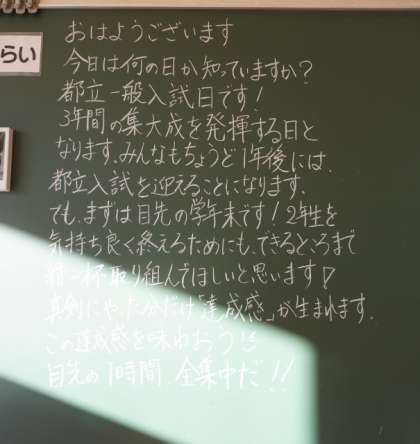 らい
おはようございます
今日は何の日か知っていますか？
都立一般入試日です！
3年間の集大成を発揮する日と
なります。みんなもちょうど1年後には、
都立入試を迎えることになります。
でも、まずは目先の学年末です！2年生を
気持ち良く終えるためにも、できるところまで
精一杯取り組んでほしいと思います！
真剣にやった分だけ「達成感」が生まれます。
この達成感を味わおう！！
目先の1時間、全集中だ！！